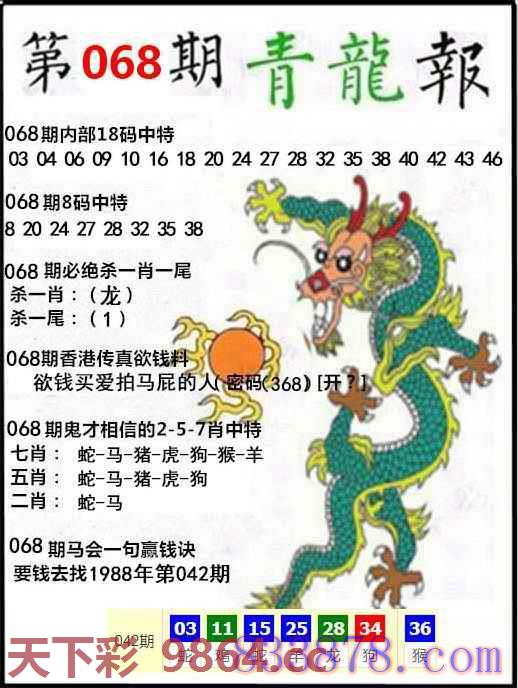 第068期青龍報
068期内部18码中特
03 04 06 09 10 16 18 20 24 27 28 32 35 38 40 42 43 46
068期8码中特
8 20 24 27 28 32 35 38
068期必绝杀一肖一尾
杀一肖：（龙）
杀一尾：（1）
068期香港传真欲钱料
欲钱买爱拍马屁的人(密码(368)[开？]
068期鬼才相信的2-5-7肖中特
七肖： 蛇-马-猪-虎-狗-猴-羊
五肖： 蛇-马-猪-虎-狗
二肖： 蛇-马
068期马会一句赢钱诀
要钱去找1988年第042期
042期 03 11 15 25 28 34 36
蛇 鸡 蛇 羊 龙 狗 猴
天下彩 9864.cc